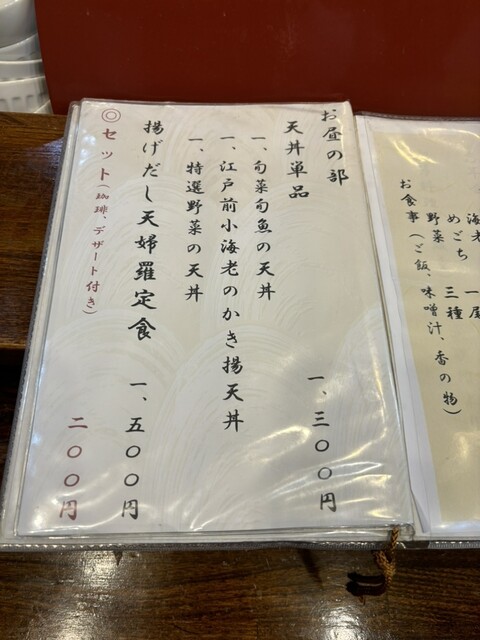 海老 一尾
めごち
野菜 三種
お食事（ご飯、味噌汁、香の物）
お昼の部
天丼単品 一、三〇〇円
一、旬菜旬魚の天丼
一、江戸前小海老のかき揚天丼
一、特選野菜の天丼
揚げだし天婦羅定食 一、五〇〇円
◎セット（珈琲、デザート付き） 二〇〇円